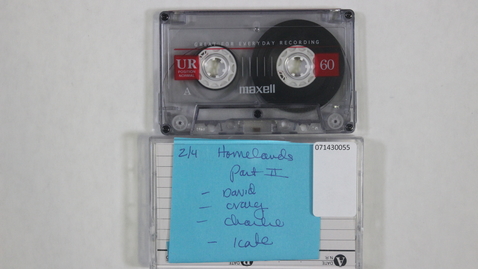 GREAT FOR EVERYDAY RECORDING
UR
POSITION
NORMAL
60
A
maxell
071430055
2/4 Homelands
Part II
- David
- Craig
- Charlie
- Kate
A
DATE
N.R.
B
DATE